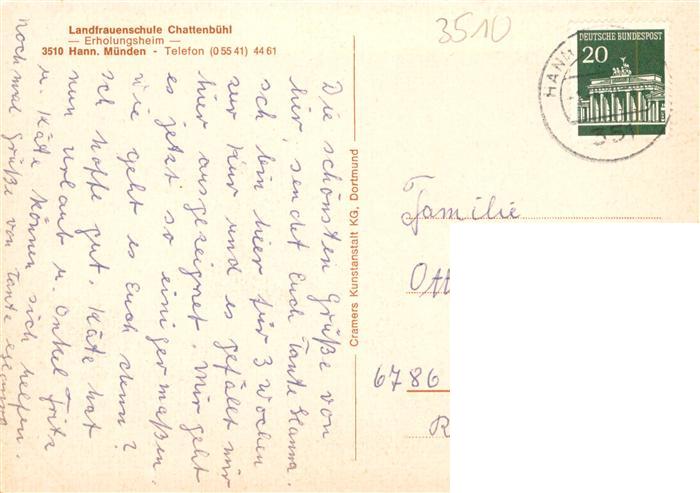 Landfrauenschule Chattenbühl
— Erholungsheim —
3510 Hann. Münden - Telefon (0 55 41) 44 61
3510
DEUTSCHE BUNDESPOST
20
HANN
351
Die schönsten Grüße von
hier, sendet Euch Tante Hanna.
ich bin hier für 3 Wochen
zur Kur und es gefällt mir
hier ausgezeignet. Mir geht
es jetzt so einigermaßen.
Wie geht es Euch denn?
ich hoffe gut. Käte hat
nun Urlaub u. Onkel Fritz
u. Käte können sich helfen.
nochmal Grüße von Tante Hanna
Cramers Kunstanstalt KG, Dortmund
Familie
Ott
6786
R